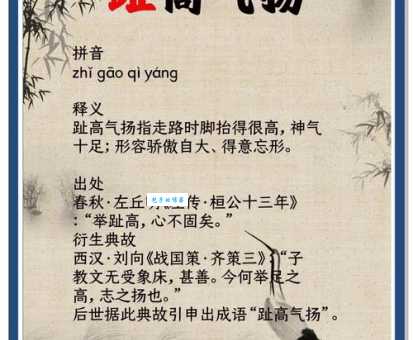 趾高气扬
拼音
zhǐ gāo qì yáng
释义
趾高气扬指走路时脚抬得很高，神气
十足；形容骄傲自大、得意忘形。
出处
春秋·左丘 传·桓公十三年》
：“举趾高，心不固矣。”
衍生典故
西汉·刘向《战国策·齐策三》：“子
教文无受象床，甚善。今何举足之
高，志之扬也。”
后世据此典故引申出成语“趾高气扬”。